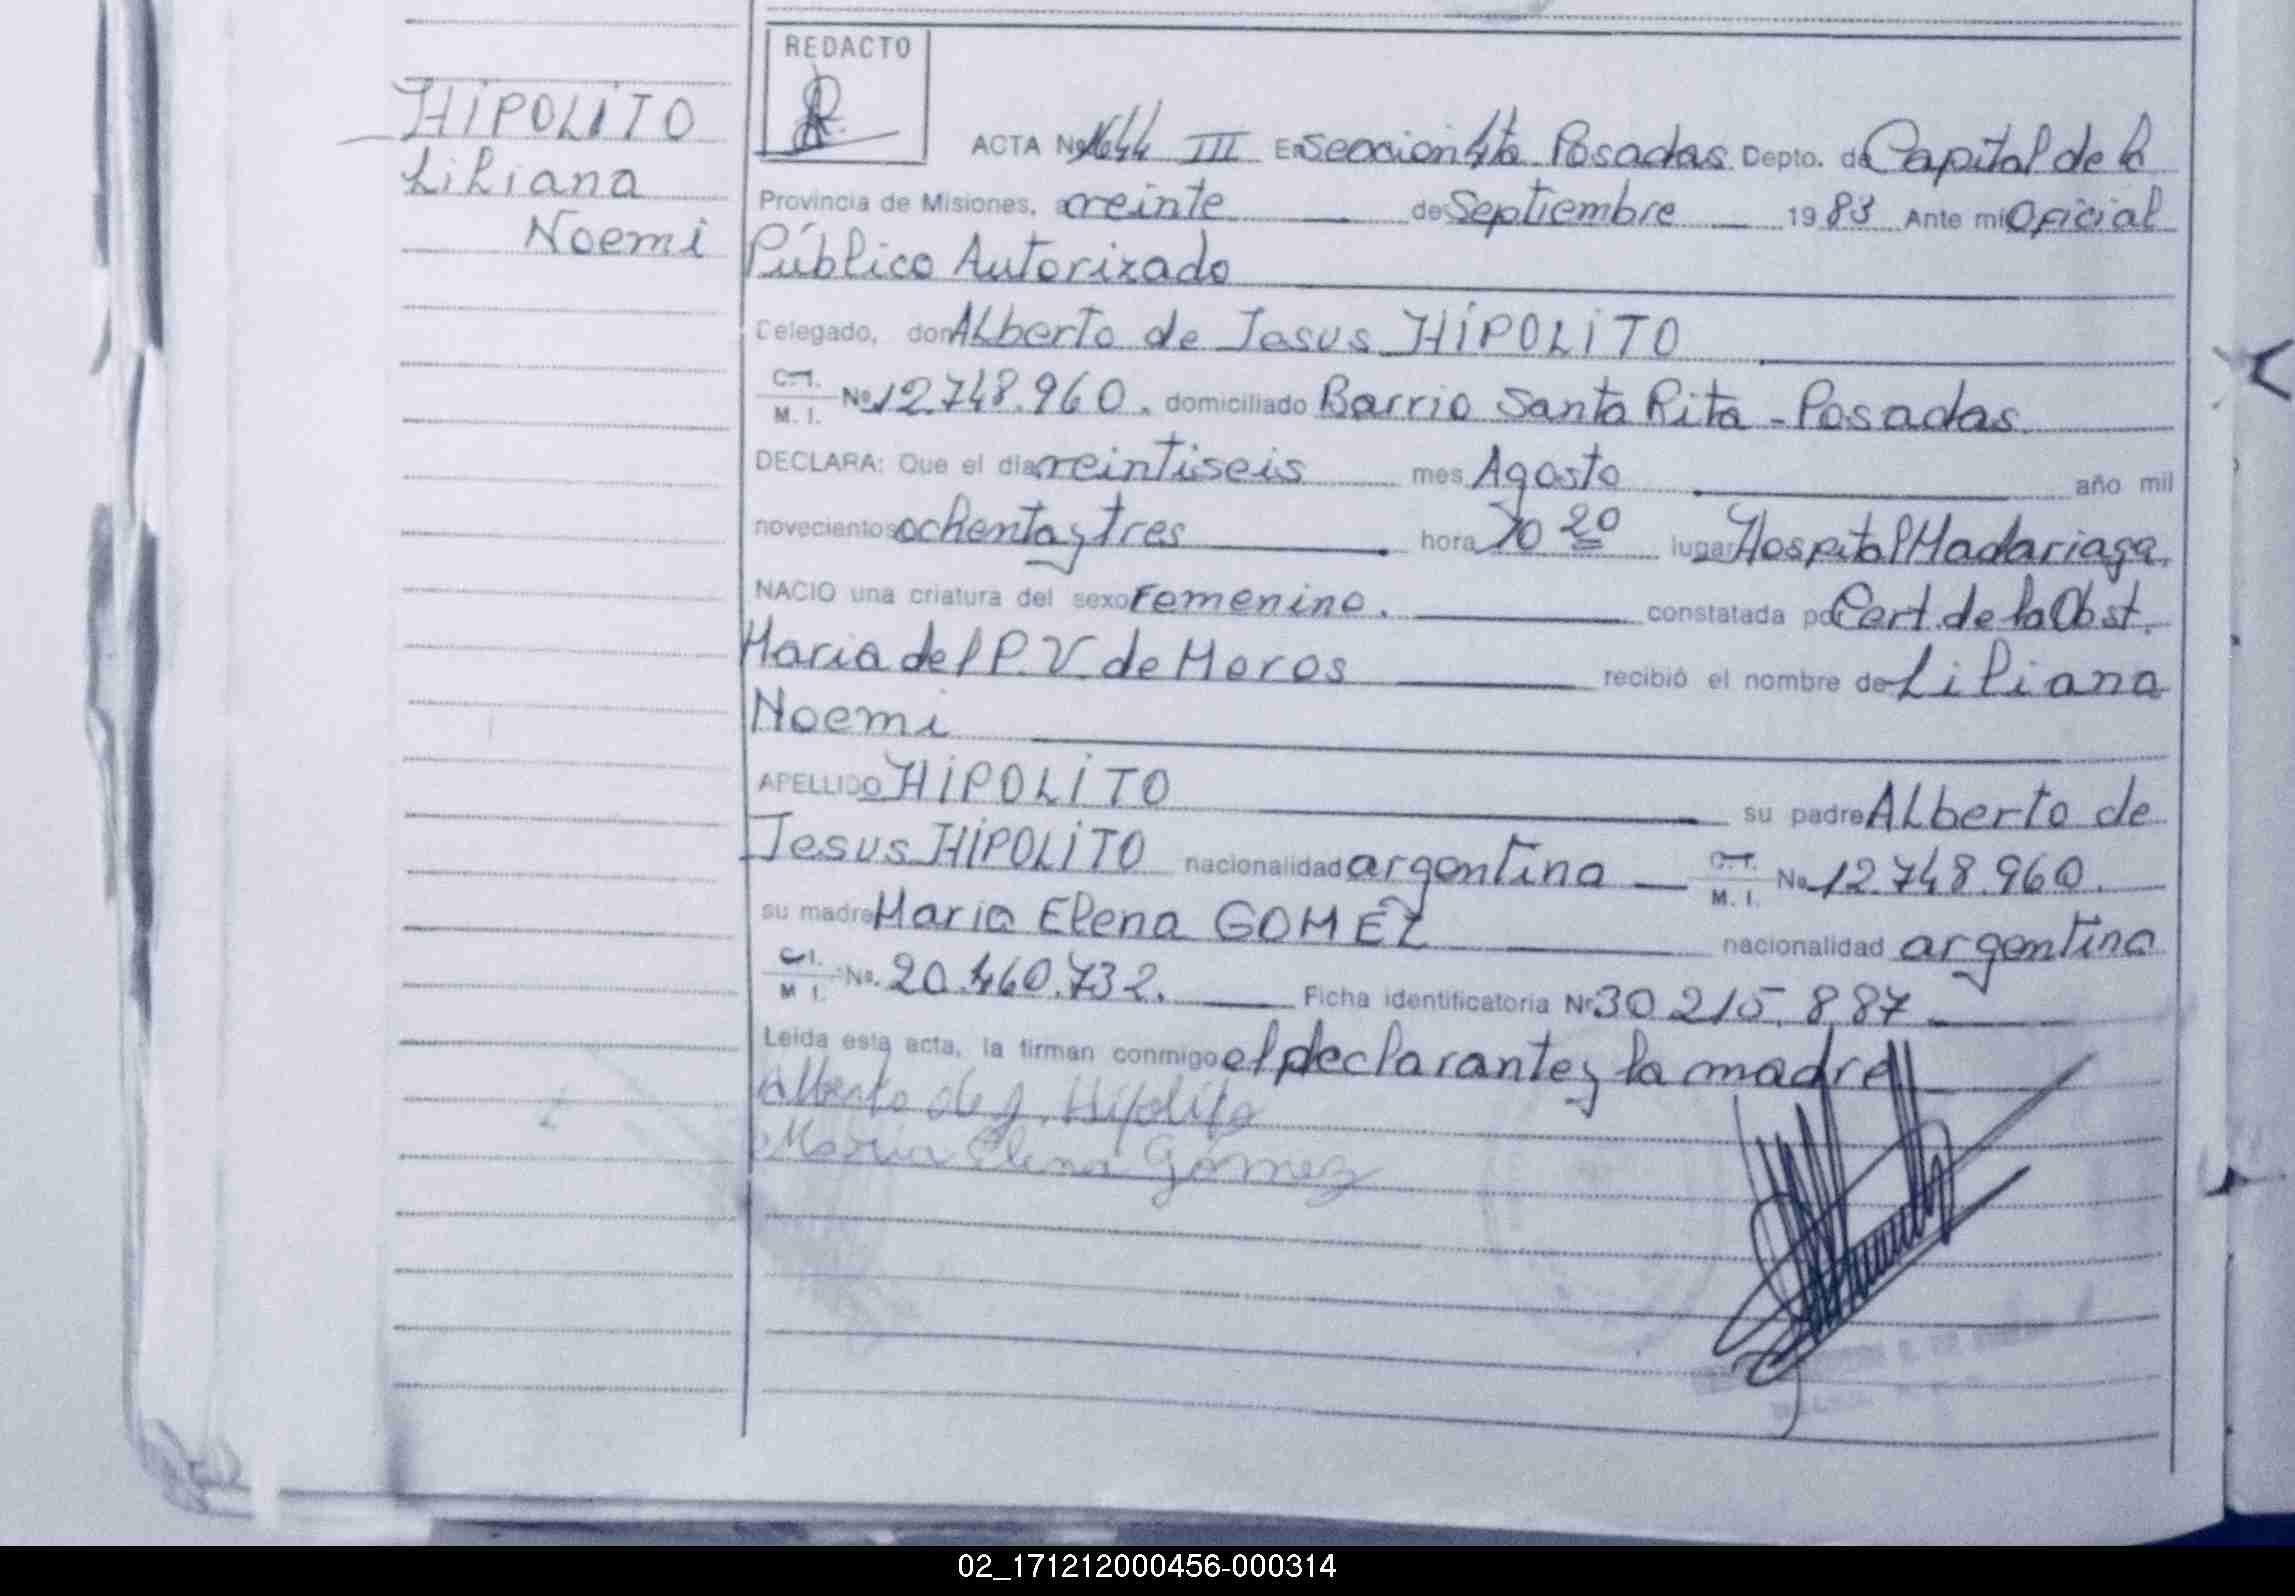 HIPOLITO
Liliana
Noemi
REDACTO
ACTA Nº 1644 III En Sección 4ta Posadas Depto. de Capital de la
Provincia de Misiones, a veinte de Septiembre 1983 Ante mi Oficial
Público Autorizado
Delegado, don Alberto de Jesus HIPOLITO
C.I. M. I. Nº 12.748.960. domiciliado Barrio Santa Rita - Posadas.
DECLARA: Que el día veintiseis mes Agosto año mil
novecientos ochenta y tres hora 10 20 lugar Hospital Madariaga.
NACIO una criatura del sexo Femenino. constatada por Cert. de la Obst.
Maria del P. V. de Moros recibió el nombre de Liliana
Noemi
APELLIDO HIPOLITO su padre Alberto de
Jesus HIPOLITO nacionalidad argentina C.I. M. I. Nº 12.748.960.
su madre Maria Elena GOMEZ nacionalidad argentina
C.I. M I. Nº. 20.460.732. Ficha identificatoria Nº 30 215.887
Leída esta acta, la firman conmigo el declarante y la madre
Alberto de J. Hipolito
Maria Elena Gómez
02_171212000456-000314